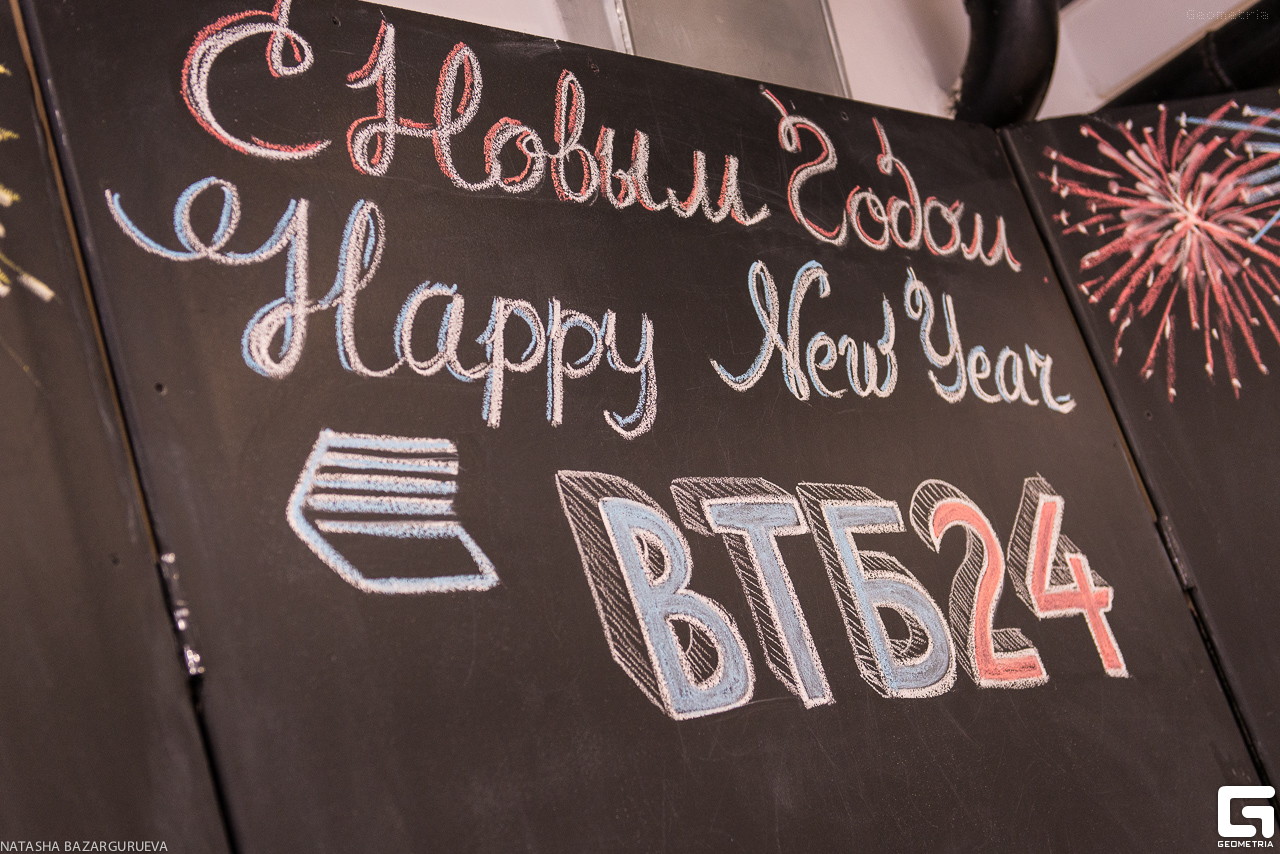 Geometria
С Новым Годом
Happy New Year
ВТБ24
NATASHA BAZARGURUEVA
GEOMETRIA